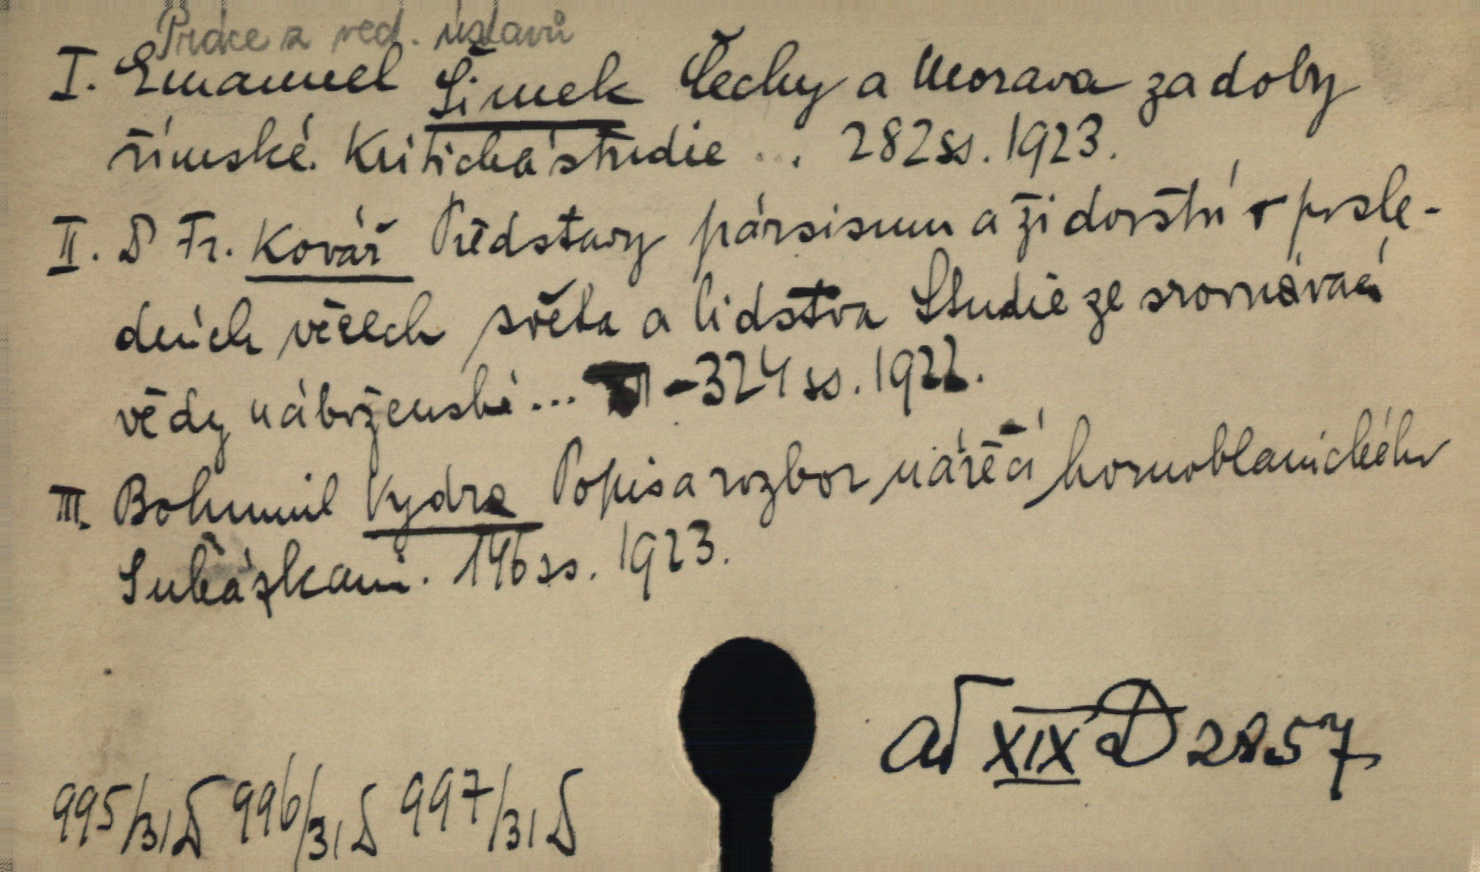 Práce z věd. ústavů
I. Emanuel Šimek Čechy a Morava za doby
římské. Kritická studie ... 282 ss. 1923.
II. D Fr. Kovář Představy pársismu a židovství o posle-
dních věcech světa a lidstva Studie ze srovnávací
vědy náboženské ... -324 ss. 1922.
III. Bohumil Vydra Popis a rozbor nářečí hornoblanického
S ukázkami. 146 ss. 1923.
ad XIX D 2857
995/31 D 996/31 D 997/31 D